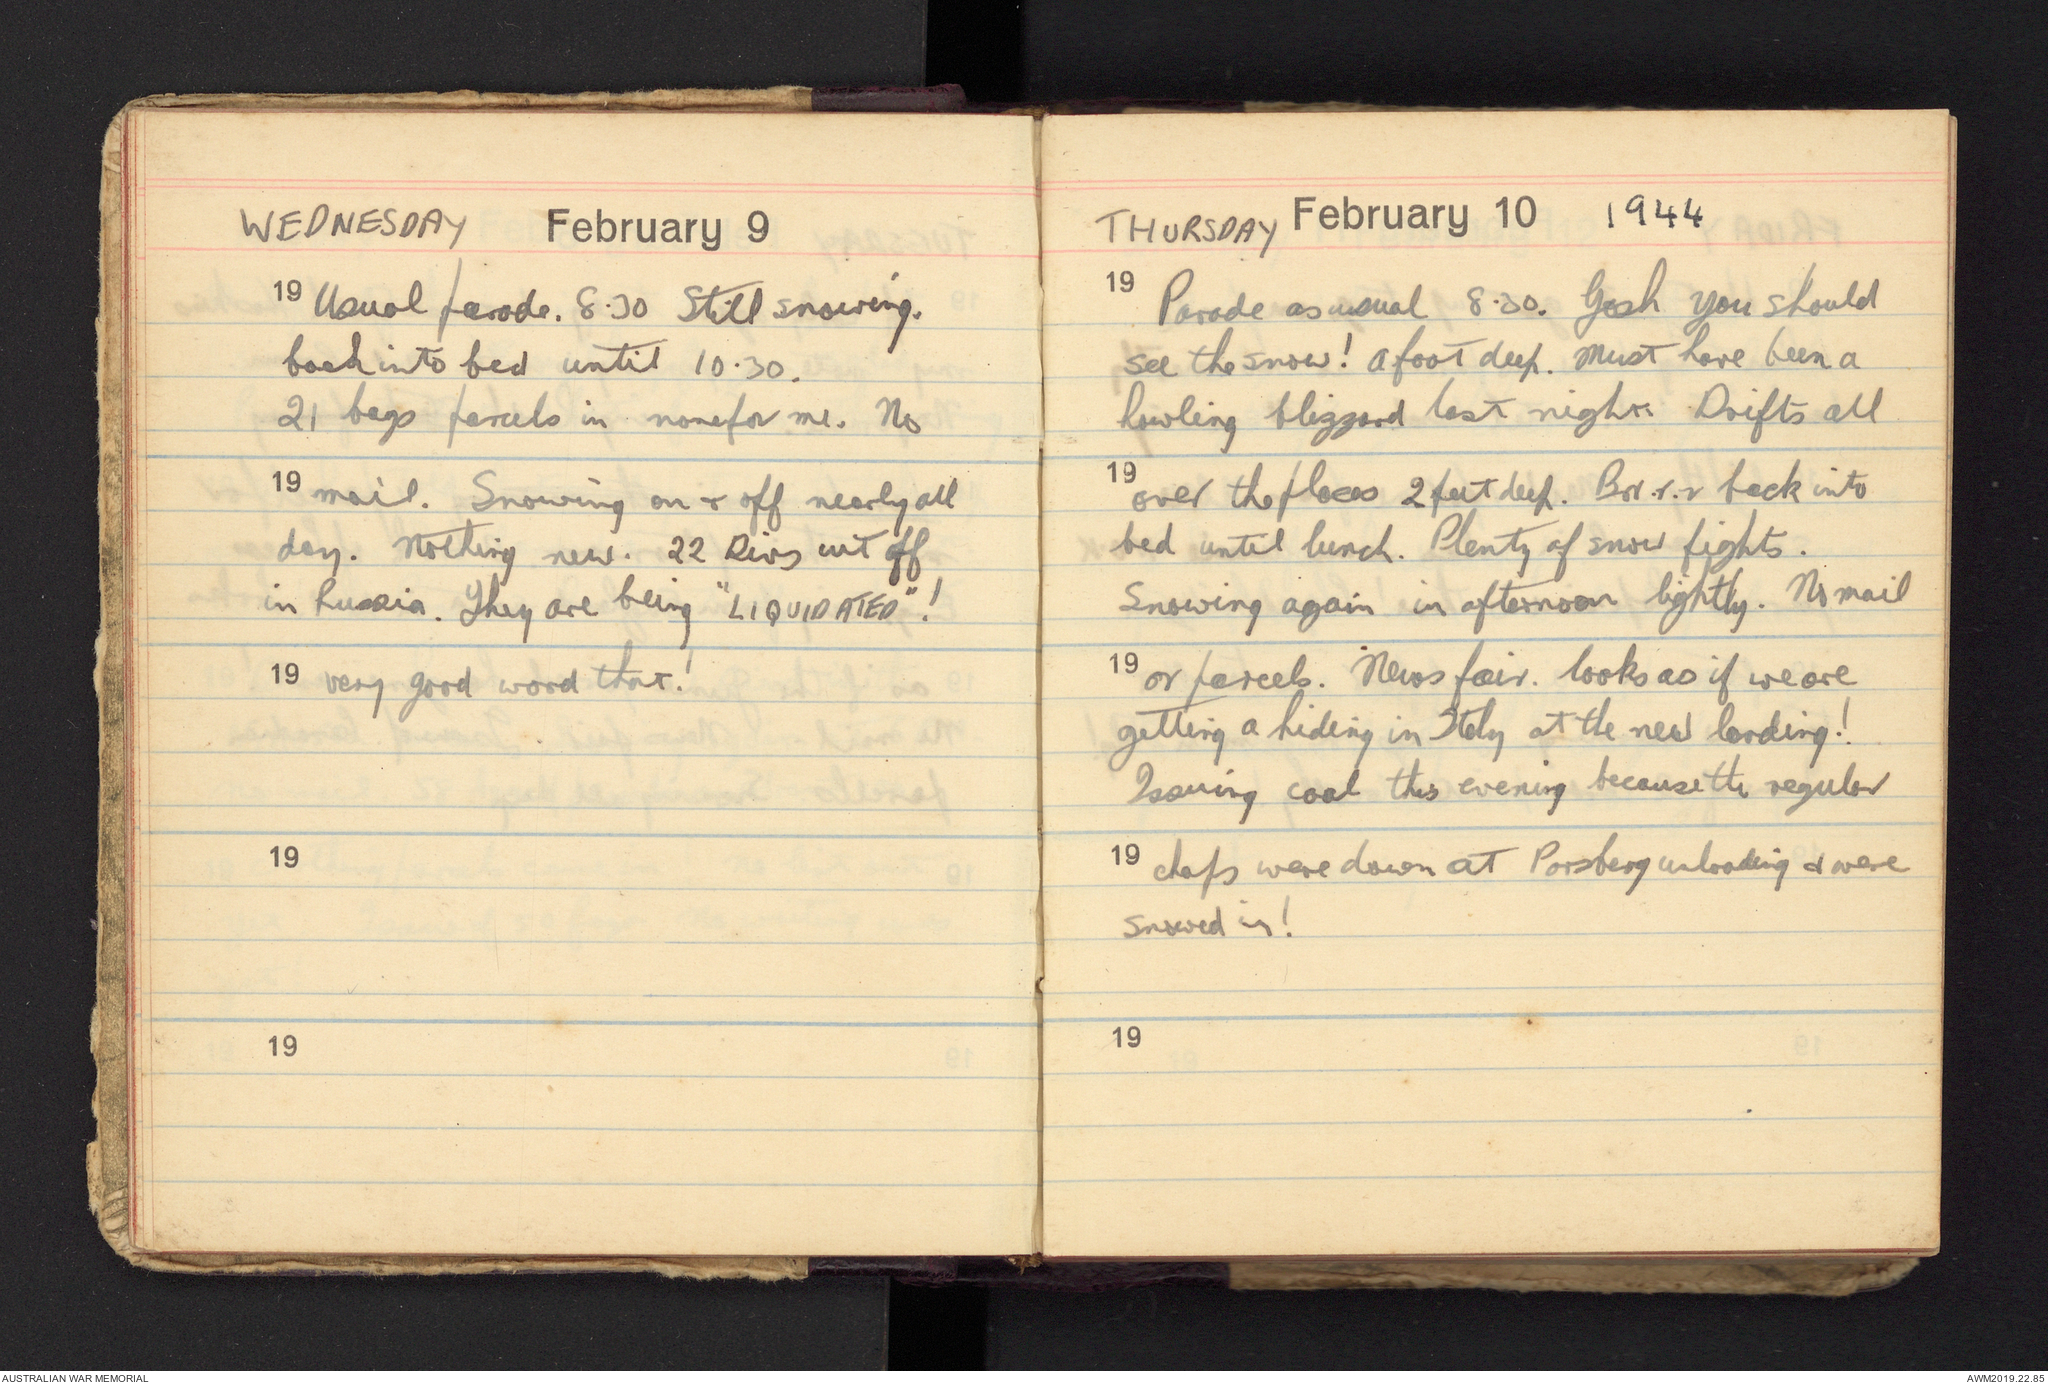 WEDNESDAY February 9
19 Usual parade. 8.30 Still snowing.
back into bed until 10.30.
21 bags parcels in none for me. No
19 mail. Snowing on & off nearly all
day. Nothing new. 22 Divs cut off
in Russia. They are being "LIQUIDATED"!
19 very good word that!
19
19
THURSDAY February 10 1944
19 Parade as usual 8.30. Gosh you should
see the snow! a foot deep. Must have been a
howling blizzard last night. Drifts all
19 over the place 2 feet deep. Brr.r.r back into
bed until lunch. Plenty of snow fights.
Snowing again in afternoon lightly. No mail
19 or parcels. News fair. looks as if we are
getting a hiding in Italy at the new landing!
Issuing coal this evening because the regular
19 chaps were down at Parsberg unloading & were
snowed in!
19
AUSTRALIAN WAR MEMORIAL
AWM2019.22.85